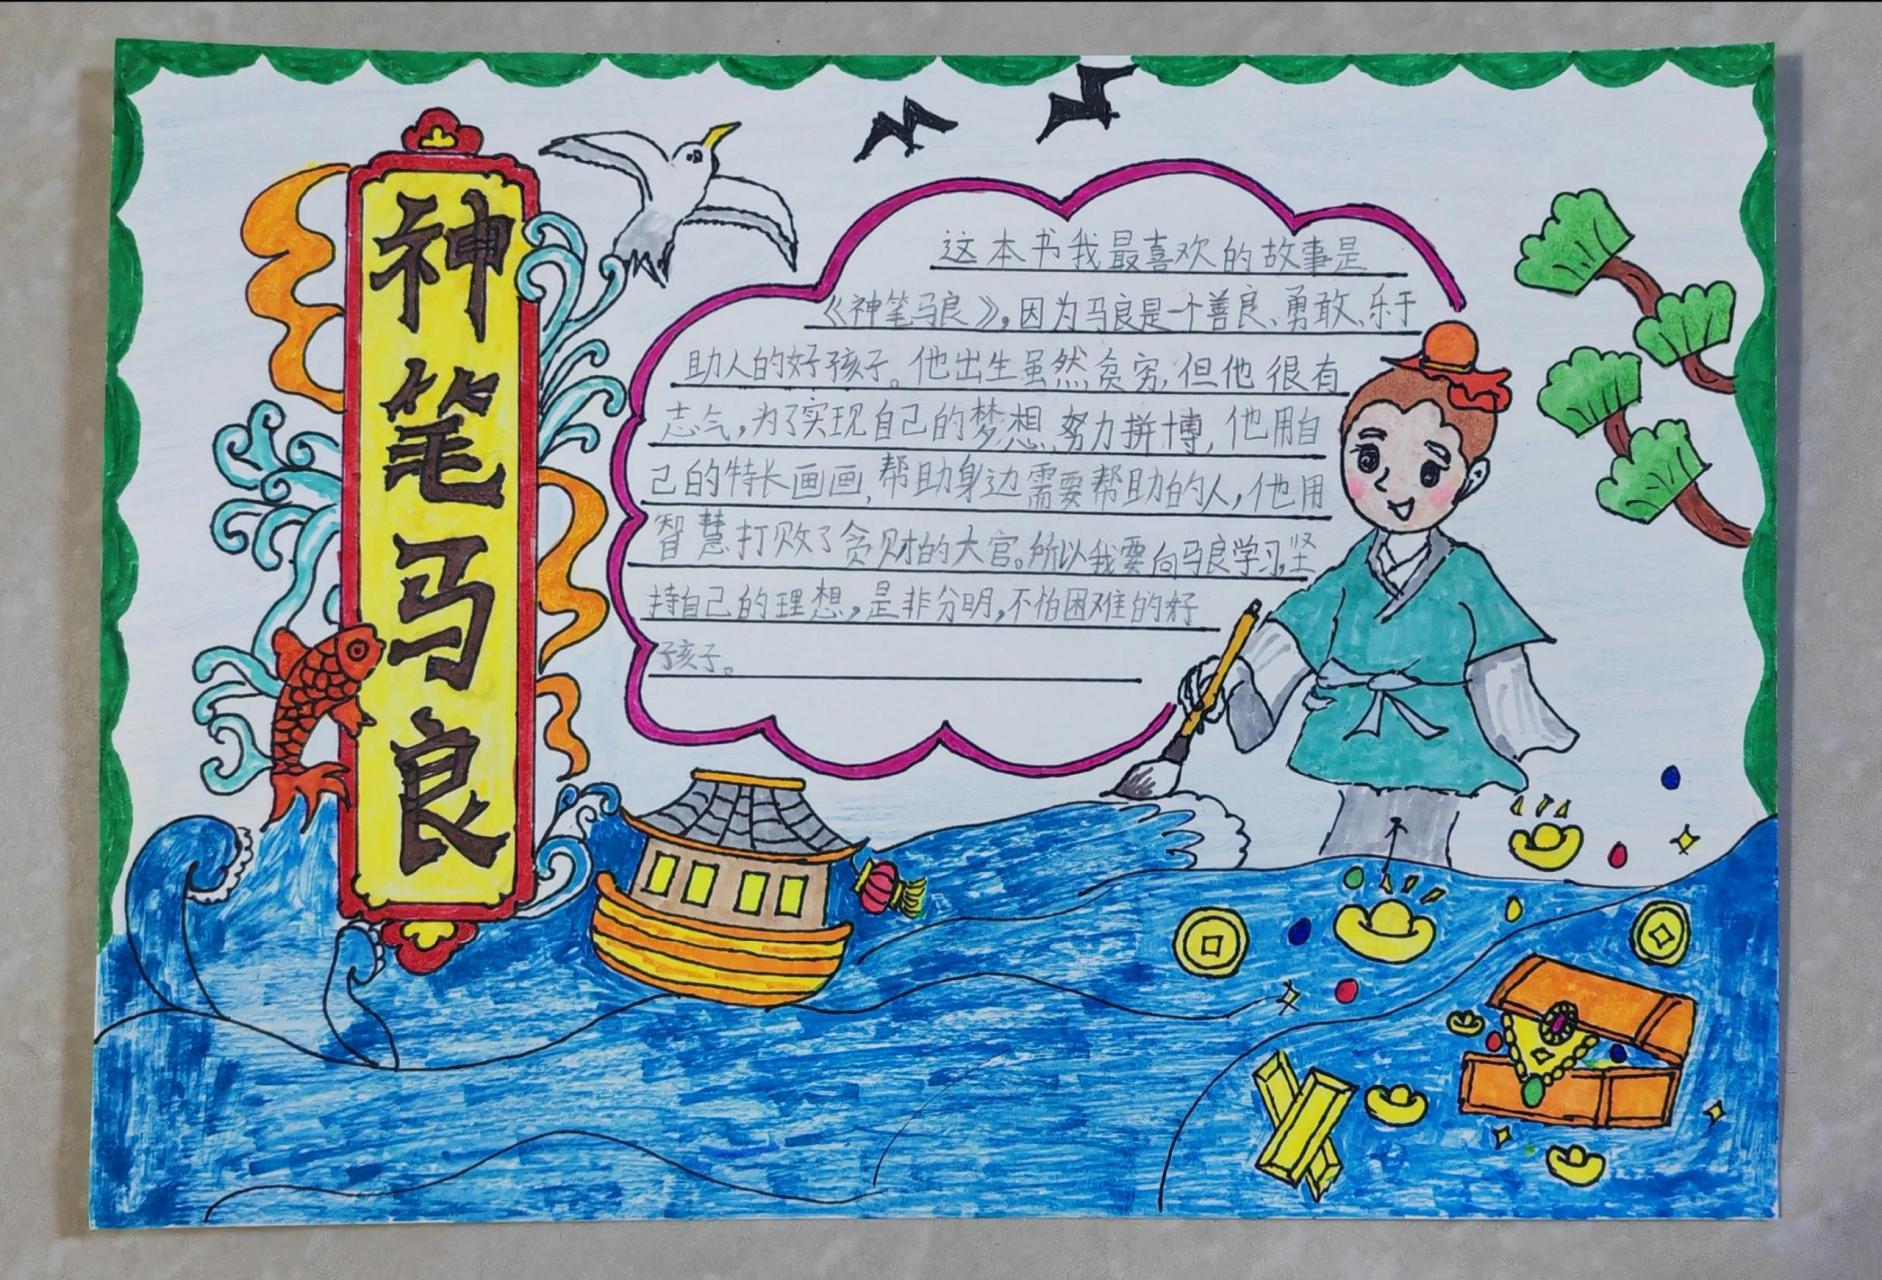 神笔马良
这本书我最喜欢的故事是
《神笔马良》。因为马良是一个善良、勇敢、乐于
助人的好孩子。他出生虽然贫穷，但他很有
志气，为了实现自己的梦想，努力拼搏，他用自
己的特长画画，帮助身边需要帮助的人，他用
智慧打败了贪财的大官。所以我要向马良学习，坚
持自己的理想，是非分明，不怕困难的好
孩子。